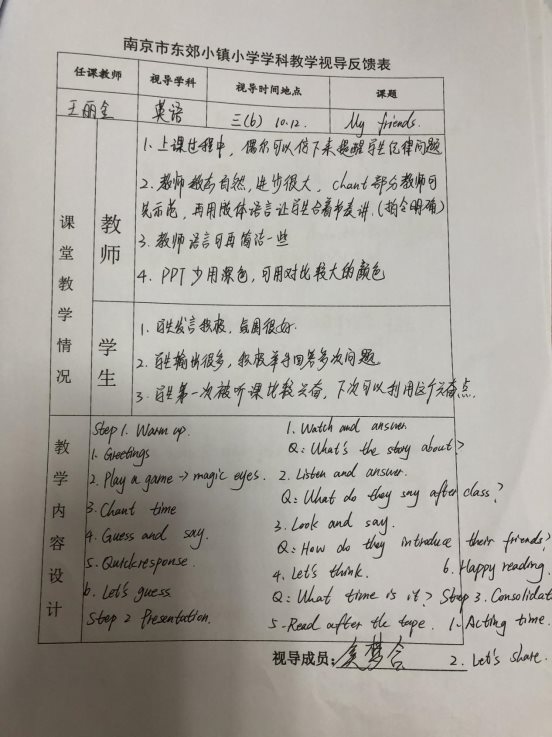 南京市东郊小镇小学学科教学视导反馈表
任课教师 视导学科 视导时间地点 课题
王丽全 英语 三(6) 10.12. My friends.
课堂教学情况
教师
1. 上课过程中，偶尔可以停下来提醒学生纪律问题
2. 教师教态自然，进步很大，chant部分教师可
先示范，再用肢体语言让学生合着节奏讲.(指令明确)
3. 教师语言可再简洁一些
4. PPT 少用深色，可用对比较大的颜色
学生
1. 学生发言积极，氛围很好.
2. 学生输出很多，积极举手回答多次问题
3. 学生第一次被听课比较兴奋，下次可以利用这个兴奋点.
教学内容设计
Step 1. Warm up.
1. Greetings
2. Play a game → magic eyes.
3. Chant time
4. Guess and say.
5. Quick response.
6. Let's guess
Step 2 Presentation.
1. Watch and answer.
Q: What's the story about?
2. Listen and answer.
Q: What do they say after class?
3. Look and say.
Q: How do they introduce their friends?
4. Let's think.
Q: What time is it?
5. Read after the tape.
6. Happy reading.
Step 3. Consolidat
1. Acting time.
2. Let's share.
视导成员: